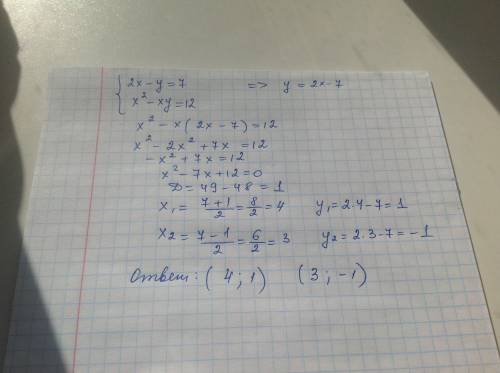 { 2x - y = 7 => y = 2x - 7
x² - xy = 12
x² - x(2x - 7) = 12
x² - 2x² + 7x = 12
- x² + 7x = 12
x² - 7x + 12 = 0
D = 49 - 48 = 1
x₁ = 7 + 1 / 2 = 8 / 2 = 4 y₁ = 2·4 - 7 = 1
x₂ = 7 - 1 / 2 = 6 / 2 = 3 y₂ = 2·3 - 7 = -1
Ответ: (4; 1) (3; -1)